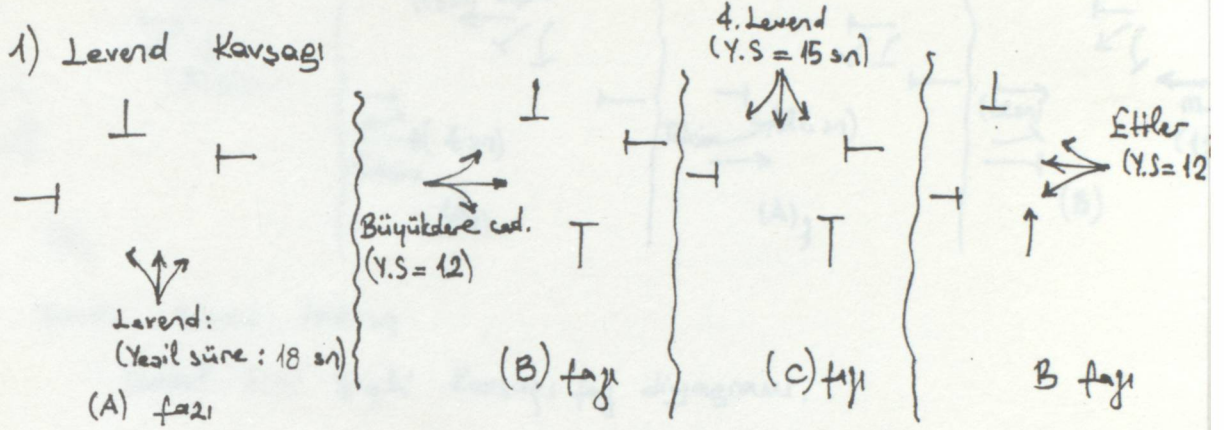 1) Levend Kavşağı
Levend:
(Yeşil süre : 18 sn)
(A) fazı
Büyükdere cad.
(Y.S = 12)
(B) fazı
4. Levend
(Y.S = 15 sn)
(C) fazı
Etiler
(Y.S = 12
B fazı